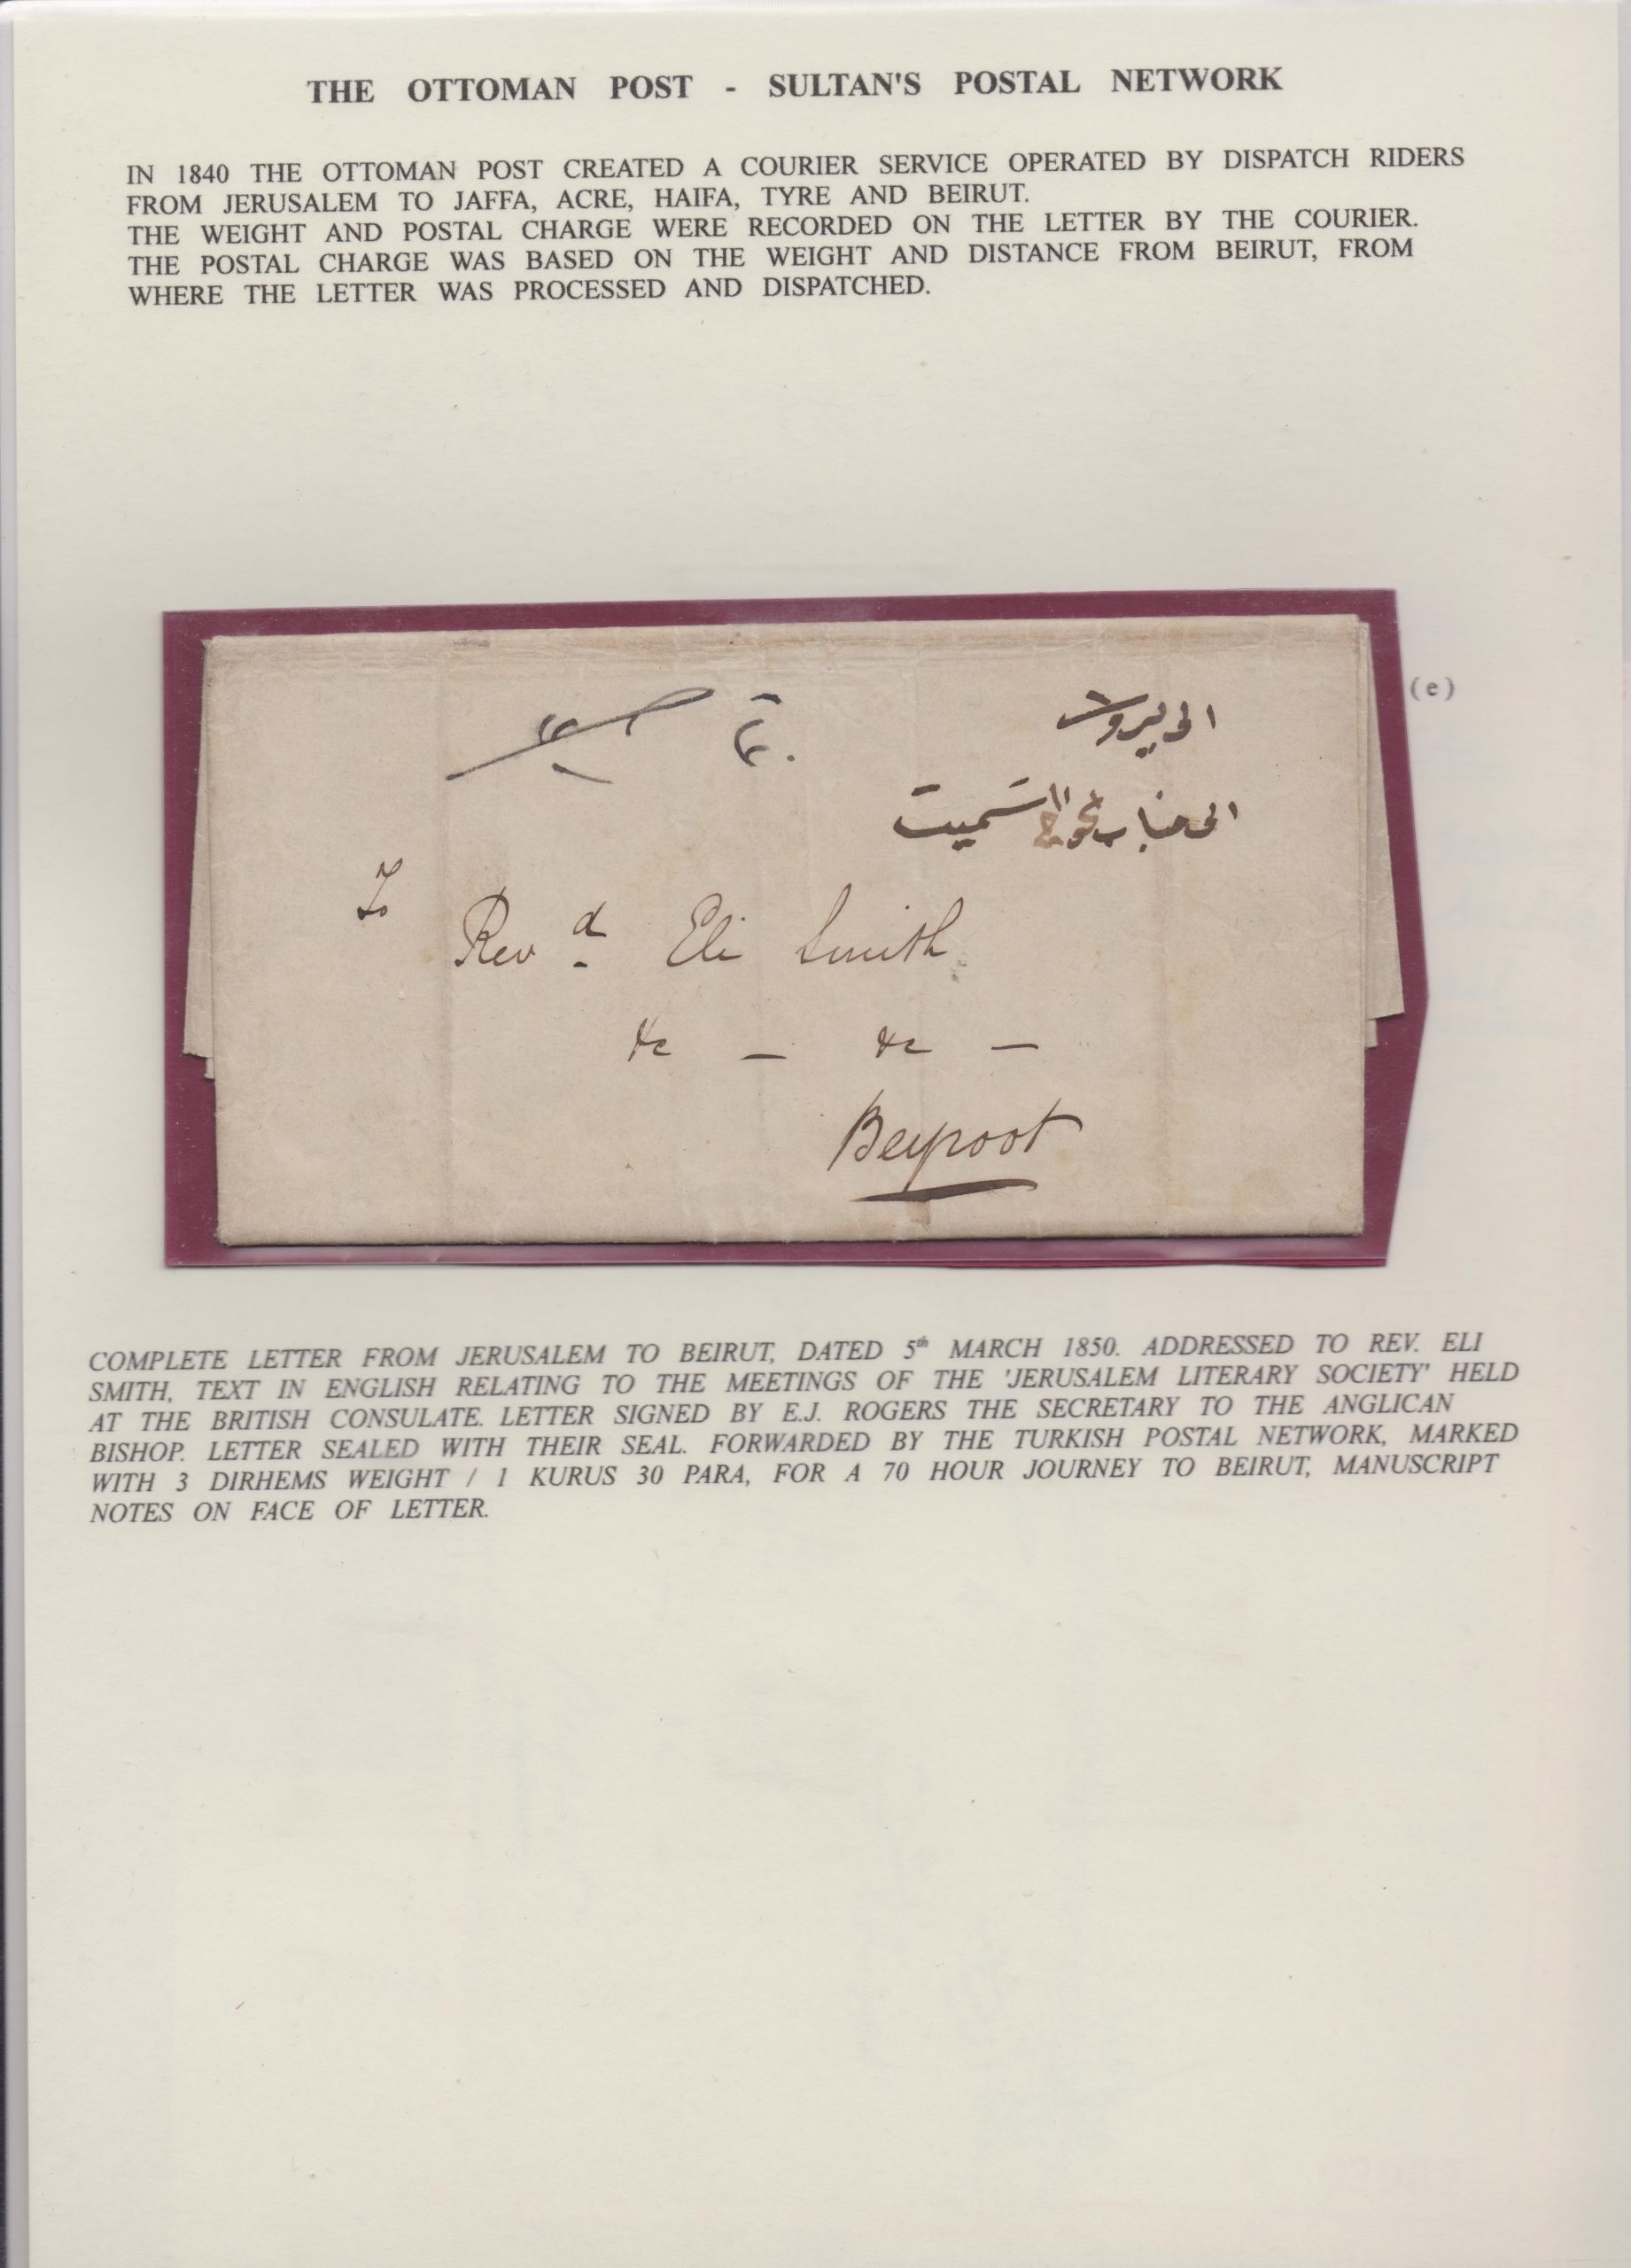 THE OTTOMAN POST - SULTAN'S POSTAL NETWORK
IN 1840 THE OTTOMAN POST CREATED A COURIER SERVICE OPERATED BY DISPATCH RIDERS
FROM JERUSALEM TO JAFFA, ACRE, HAIFA, TYRE AND BEIRUT.
THE WEIGHT AND POSTAL CHARGE WERE RECORDED ON THE LETTER BY THE COURIER.
THE POSTAL CHARGE WAS BASED ON THE WEIGHT AND DISTANCE FROM BEIRUT, FROM
WHERE THE LETTER WAS PROCESSED AND DISPATCHED.
(e)
الى بيروت
الى جناب الخواجا سميت
To
Revd Eli Smith
&c — &c —
Beyroot
COMPLETE LETTER FROM JERUSALEM TO BEIRUT, DATED 5th MARCH 1850. ADDRESSED TO REV. ELI
SMITH, TEXT IN ENGLISH RELATING TO THE MEETINGS OF THE 'JERUSALEM LITERARY SOCIETY' HELD
AT THE BRITISH CONSULATE. LETTER SIGNED BY E.J. ROGERS THE SECRETARY TO THE ANGLICAN
BISHOP. LETTER SEALED WITH THEIR SEAL. FORWARDED BY THE TURKISH POSTAL NETWORK, MARKED
WITH 3 DIRHEMS WEIGHT / 1 KURUS 30 PARA, FOR A 70 HOUR JOURNEY TO BEIRUT, MANUSCRIPT
NOTES ON FACE OF LETTER.